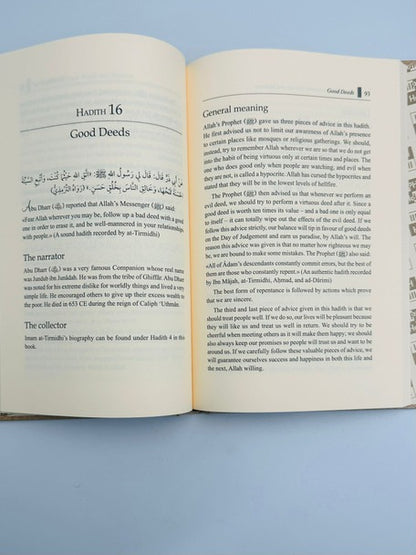 HADITH 16
Good Deeds
عن أبي ذر قال: قال لي رسول الله ﷺ: «اتق الله حيثما كنت، وأتبع السيئة
الحسنة تمحها، وخالق الناس بخلق حسن.» (رواه الترمذي)
Abu Dharr () reported that Allah's Messenger (ﷺ) said:
«Fear Allah wherever you may be, follow up a bad deed with a good
one in order to erase it, and be well-mannered in your relationships
with people.» (A sound hadith recorded by at-Tirmidhi)
The narrator
Abu Dharr () was a very famous Companion whose real name
was Jundub ibn Junâdah. He was from the tribe of Ghifâr. Abu Dharr
was noted for his extreme dislike for worldly things and lived a very
simple life. He encouraged others to give up their excess wealth to
the poor. He died in 653 CE during the reign of Caliph 'Uthmân.
The collector
Imam at-Tirmidhi's biography can be found under Hadith 4 in this
book.
Good Deeds 93
General meaning
Allah's Prophet (ﷺ) gave us three pieces of advice in this hadith.
He first advised us not to limit our awareness of Allah's presence
to certain places like mosques or religious gatherings. We should,
instead, try to remember Allah wherever we are so that we do not get
into the habit of being virtuous only at certain times and places. The
one who does good only when people are watching, and evil when
they are not, is called a hypocrite. Allah has cursed the hypocrites and
stated that they will be in the lowest levels of hellfire.
The Prophet (ﷺ) then advised us that whenever we perform an
evil deed, we should try to perform a virtuous deed after it. Since a
good deed is worth ten times its value – and a bad one is only equal
to itself – it can totally wipe out the effects of the evil deed. If we
follow this advice strictly, our balance will tip in favour of good deeds
on the Day of Judgement and earn us paradise, by Allah's will. The
reason this advice was given is that no matter how righteous we may
be, we are bound to make some mistakes. The Prophet (ﷺ) also said:
«All of Âdam's descendants constantly commit errors, but the best of
them are those who constantly repent.» (An authentic hadith recorded
by Ibn Mâjah, at-Tirmidhi, Aḥmad, and ad-Dârimi)
The best form of repentance is followed by actions which prove
that we are sincere.
The third and last piece of advice given in this hadith is that we
should treat people well. If we do so, our lives will be pleasant because
they will like us and treat us well in return. We should try to be
cheerful when meeting others as it will make them happy; we should
also always keep our promises so people will trust us and want to be
around us. If we carefully follow these valuable pieces of advice, we
will guarantee ourselves success and happiness in both this life and
the next, Allah willing.